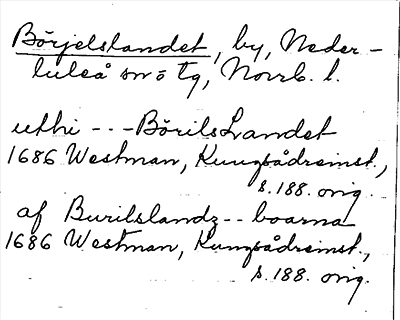 Börjelslandet, by, Neder-
luleå sn o tg, Norrb. l.
uthi - - - BörilsLandet
1686 Westman, Kungsådreinst.,
s. 188. orig.
af Burilslandz - - boarna
1686 Westman, Kungsådreinst.,
s. 188. orig.